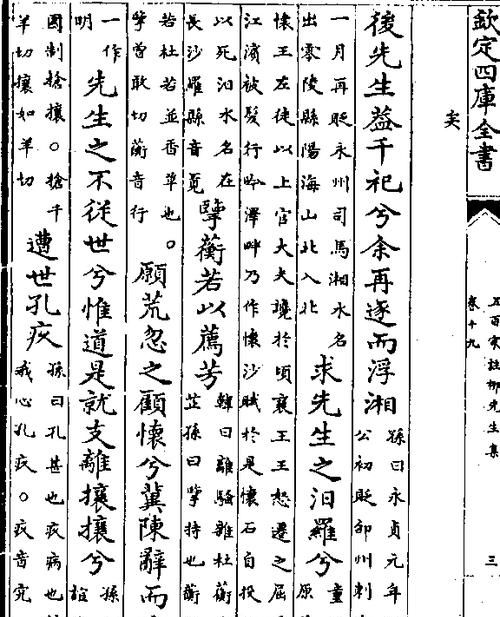 欽定四庫全書
五百家註柳先生集
卷十九
三
後先生蓋千祀兮余再逐而浮湘
孫曰永貞元年
公初貶邵州刺
一月再貶永州司馬湘水名
出零陵縣陽海山北入北
求先生之汨羅兮
童
原
懷王左徒以上官大夫讒於頃襄王王怒遷之屈
江濱被髮行吟澤畔乃作懷沙賦於是懷石自投
以死汨水名在
長沙羅縣音覓
擥蘅若以薦芳
韓曰離騷雜杜蘅
芷孫曰擥持也蘅
若杜若並香草也。
擥曾敢切蘅音行
願荒忽之顧懷兮冀陳辭而
一作
明
先生之不從世兮惟道是就支離搶攘兮
孫
誼
國制搶攘○搶千
羊切攘如羊切
遭世孔疚
孫曰孔甚也疚病也
我心孔疚○疚音究